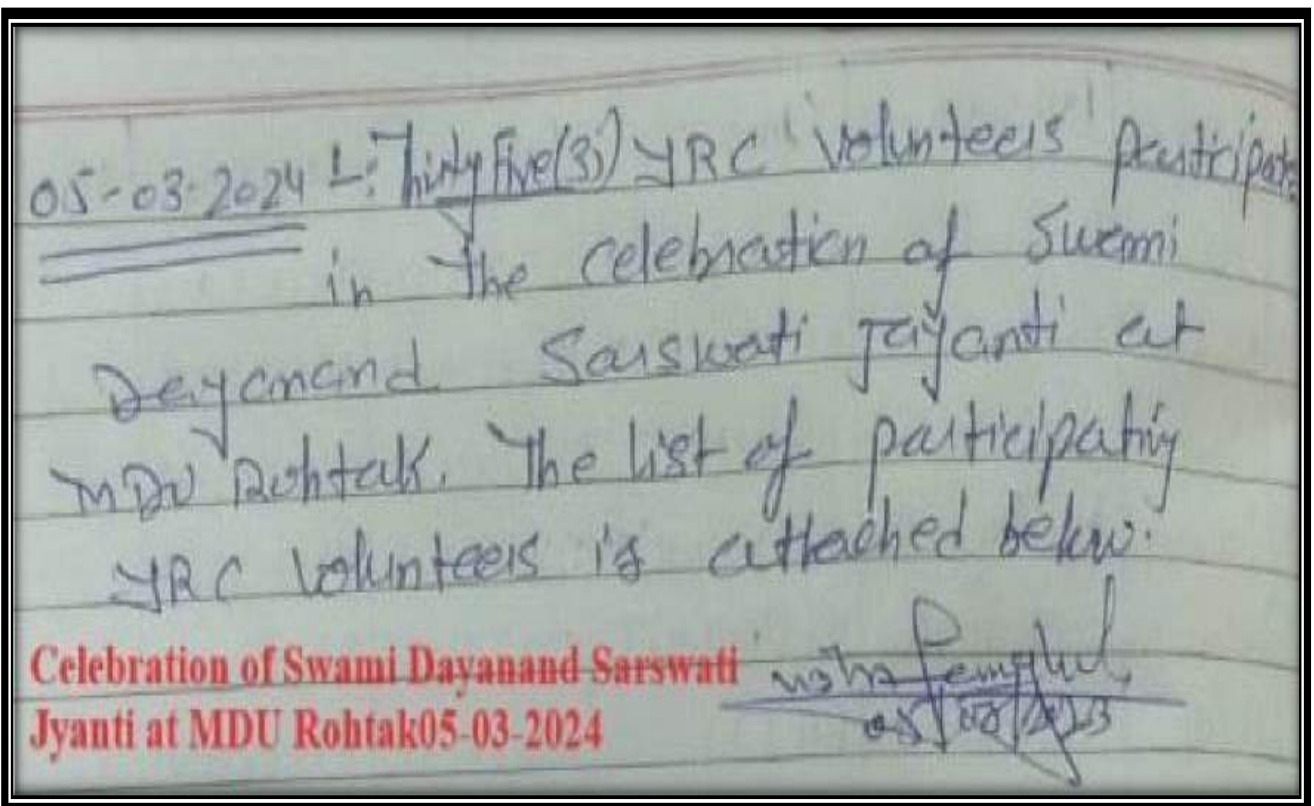 05-03-2024 :- Thirty Five(35) YRC Volunteers participate
in the celebration of Swami
Dayanand Sarswati Jayanti at
MDU Rohtak. The list of participating
YRC Volunteers is attached below.
Celebration of Swami Dayanand Sarswati
Jyanti at MDU Rohtak05-03-2024